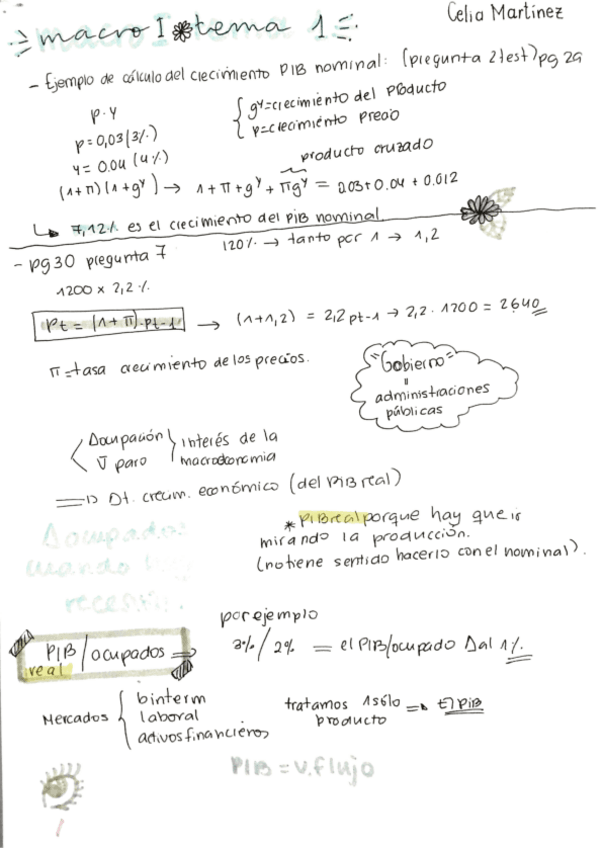 Celia Martínez
macro I * tema 1
- Ejemplo de cálculo del crecimiento PIB nominal: (pregunta 2 test) pg 29
p·y
{ gʸ=crecimiento del producto
p=crecimiento precio
p=0,03 (3%)
y=0.04 (4%)
producto cruzado
(1+π)(1+gʸ) → 1+π+gʸ+πgʸ = 0.03+0.04+0.012
↳ 7,12% es el crecimiento del PIB nominal.
- pg30 pregunta 7
120% → tanto por 1 → 1,2
1200 x 2,2%
Pt = (1+π)·pt-1 → (1+1,2) = 2,2 pt-1 → 2,2 · 1200 = 2640
π=tasa crecimiento de los precios.
"Gobierno"
=
administraciones públicas
Δocupación } interés de la
∇ paro macroeconomía
=> Δt. crecim. económico (del PIB real)
* PIB real porque hay que ir
mirando la producción.
(no tiene sentido hacerlo con el nominal).
Δocupados
cuando
recesión.
por ejemplo
PIB real / ocupados => 3% / 2% = el PIB/ocupado Δ al 1%
Mercados { binterm
laboral
activos financieros
tratamos 1 sólo producto => El PIB
PIB = v. flujo